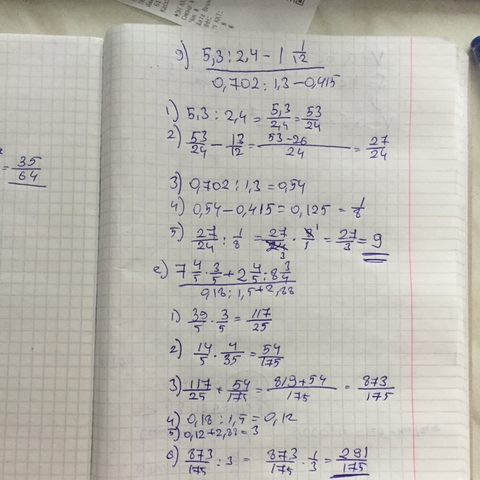 = 35/64
g) (5,3 : 2,4 - 1 1/12) / (0,702 : 1,3 - 0,415)
1) 5,3 : 2,4 = 5,3/2,4 = 53/24
2) 53/24 - 13/12 = (53-26)/24 = 27/24
3) 0,702 : 1,3 = 0,54
4) 0,54 - 0,415 = 0,125 = 1/8
5) 27/24 : 1/8 = 27/24 · 8/1 = 27/3 = 9
e) (7 4/5 · 3/5 + 2 4/5 : 8 3/4) / (0,18 : 1,5 + 2,88)
1) 39/5 · 3/5 = 117/25
2) 14/5 · 4/35 = 54/175
3) 117/25 + 54/175 = (819+54)/175 = 873/175
4) 0,18 : 1,5 = 0,12
5) 0,12 + 2,88 = 3
6) 873/175 : 3 = 873/175 · 1/3 = 291/175